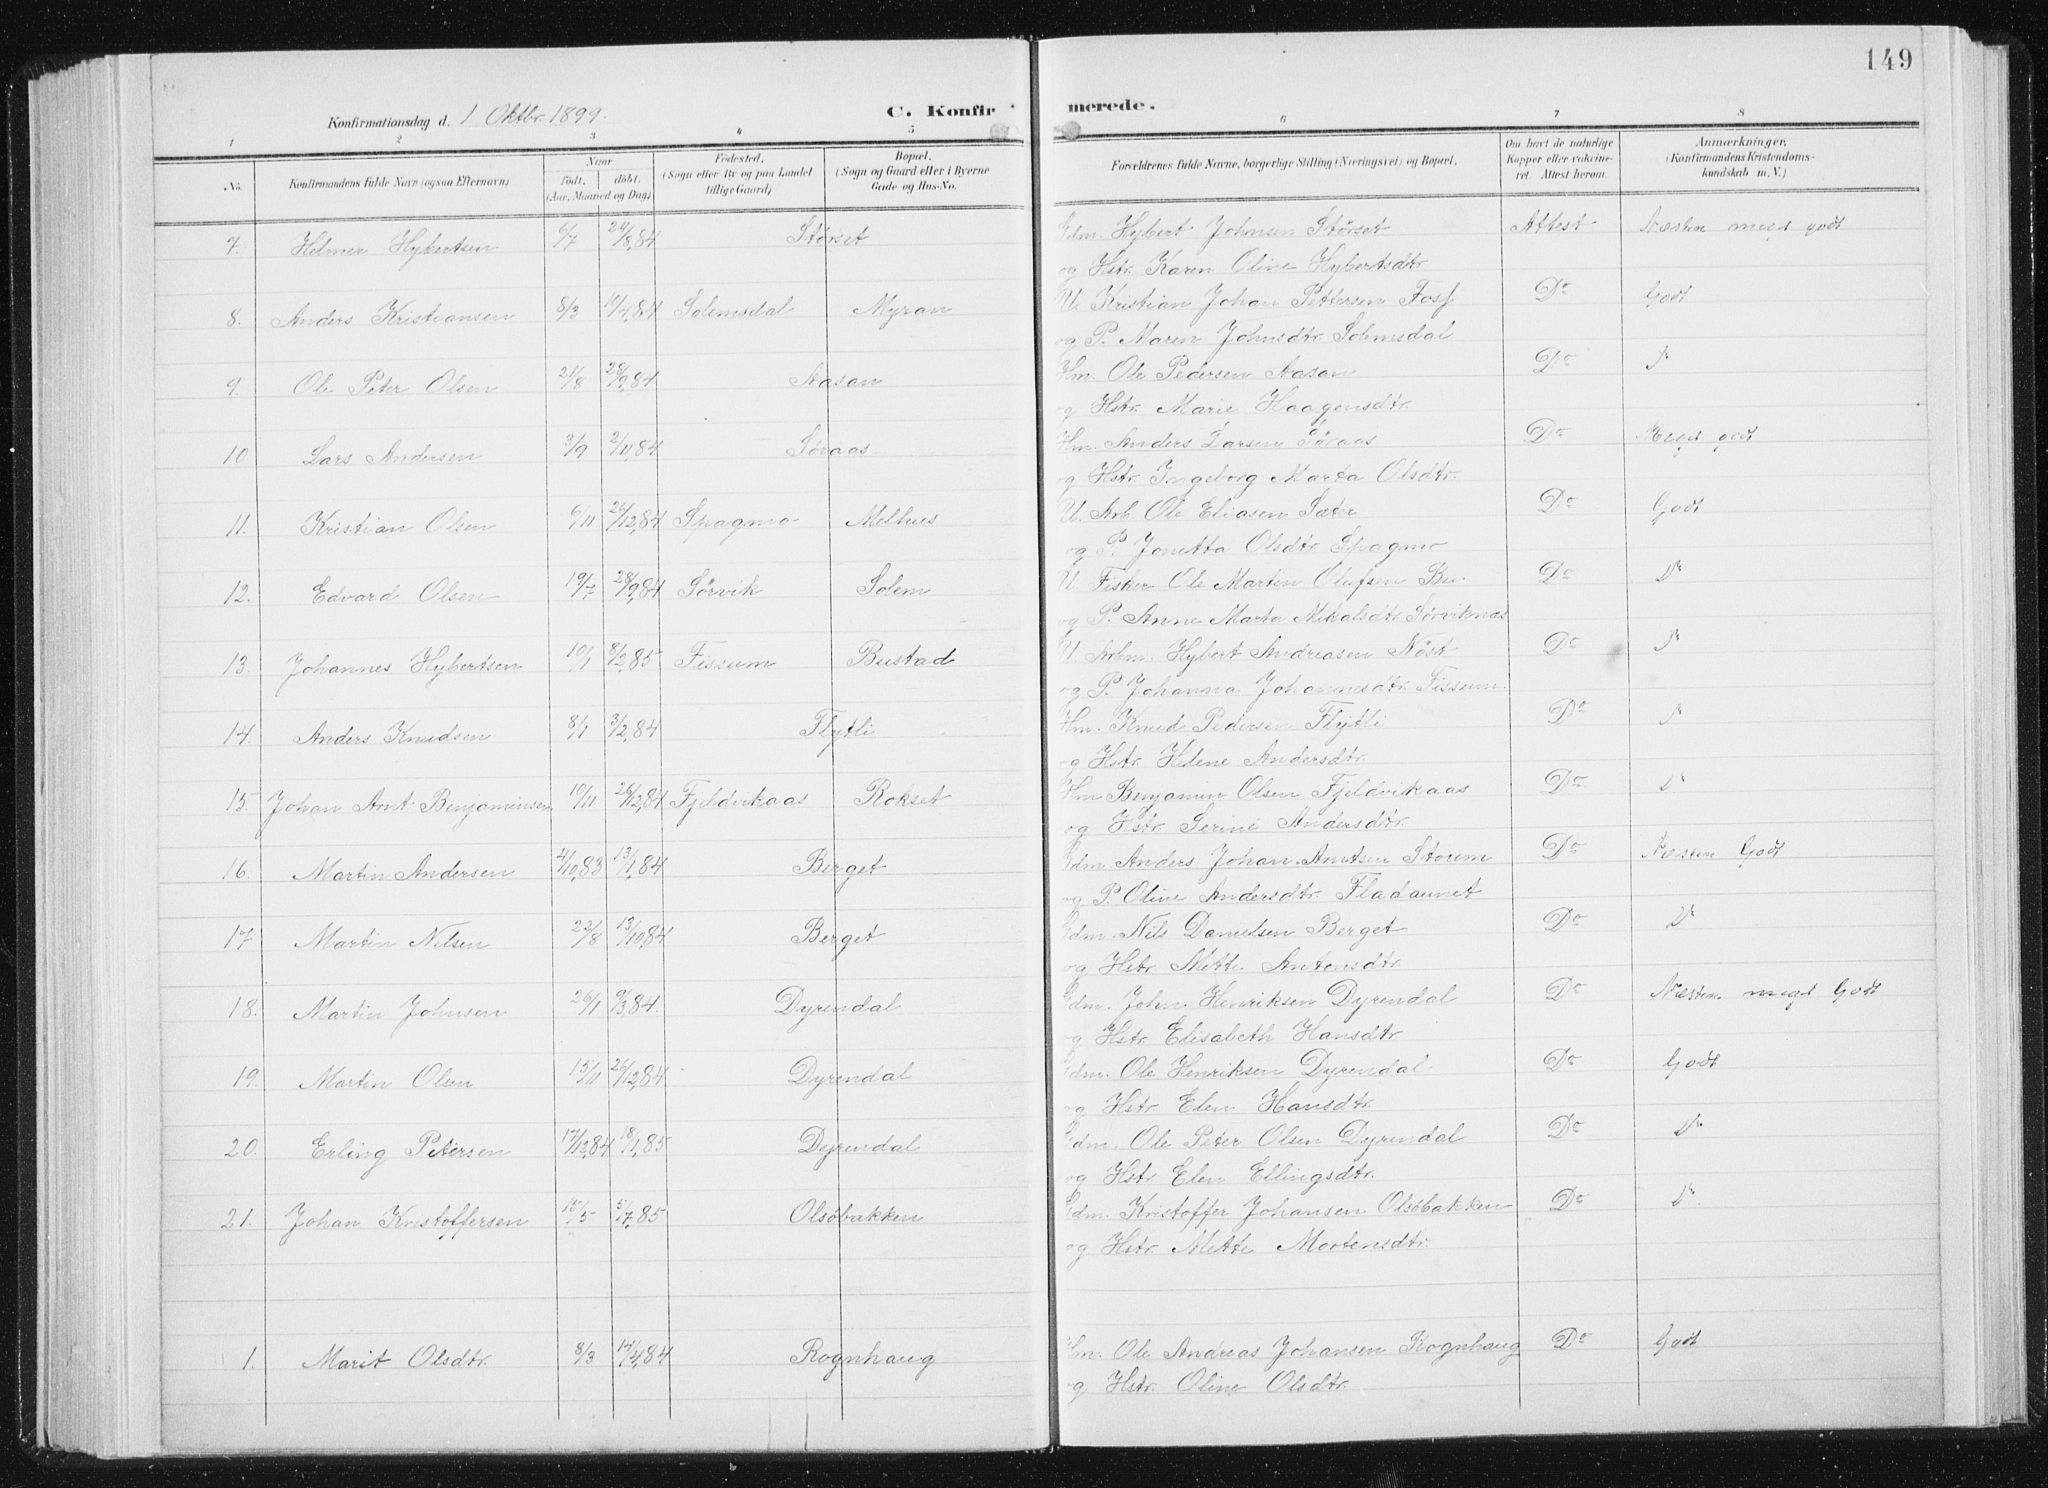 149
Konfirmationsdag d. 1 Oktbr. 1899.
C. Konfirmerede.
1 2 3 4 5 6 7 8
No. Konfirmandens fulde Navn (ogsaa Efternavn) Naar født. døbt. (Aar, Maaned og Dag) Fødested. (Sogn eller By og paa Landet tillige Gaard) Bopæl. (Sogn og Gaard eller i Byerne Gade og Hus-No. Forældrenes fulde Navne, borgerlige Stilling (Næringsvei) og Bopæl. Om havt de naturlige Kopper eller vakcineret. Attest herom. Anmærkninger. (Konfirmandens Kristendomskundskab m. V.)
7. Helmer Hybertsen 6/7 24/8,84 Størset Gdm. Hybert Johnsen Størset Attest Næsten meget godt
og Hstr. Karen Oline Hybertsdtr
8. Anders Kristiansen 8/3 14/4,84 Solemsdal Myran U. Kristian Johan Pettersen Do Godt
og P. Maren Johnsdtr Solemsdal
9. Ole Peter Olsen 21/8 28/9,84 Aasan Hm. Ole Pedersen Aasan Do
og Hstr. Marie Haagensdtr.
10 Lars Andersen 3/9 2/11,84 Søraas Hm. Anders Larsen Søraas Do Meget godt
og Hstr. Ingeborg Marta Olsdtr.
11. Kristian Olsen 6/11 26/12,84 Spagmo Melhus U. Arb. Ole Eliasen Sæter Do Godt
og P. Jonetta Olsdtr Spagmo
12. Edvard Olsen 19/7 28/9,84 Sørvik Solem U. Fisker Ole Martin Olufsen Bu Do Do
og P. Anne Marta Mikalsdtr Sørviknæs
13. Johannes Hybertsen 10/1 8/2,85 Fissum Bustad U. Arbm. Hybert Andreasen Nøst Do
og P. Johanna Johannesdtr. Fissum.
14. Anders Knudsen 8/1 3/2,84 Flytli Hm. Knud Pedersen Flytli Do
og Hstr. Helene Andersdtr.
15. Johan Arnt Benjaminsen 10/11 26/12,84 Fjeldvikaas Rokset Hm Benjamin Olsen Fjeldvikaas Do
og Hstr. Serine Andersdtr.
16. Martin Andersen 4/10,83 13/1,84 Berget Gdm. Anders Johan Arntsen Storem Do Næsten Godt
og P. Oline Andersdtr. Fladaunet
17 Martin Nilsen 22/8 13/10,84 Berget Gdm. Nils Danielsen Berget Do Do
og Hstr. Mette Antonsdtr.
18. Martin Johnsen 26/1 9/3,84. Dyrendal Gdm. John Henriksen Dyrendal Do Næsten meget Godt
og Hstr. Elisabeth Hansdtr.
19. Martin Olsen 15/11 26/12,84 Dyrendal Gdm. Ole Henriksen Dyrendal Do Godt
og Hstr. Elen Hansdtr.
20. Erling Petersen 17/12,84 18/1,85 Dyrendal Gdm. Ole Peter Olsen Dyrendal Do Do
og Hstr. Elen Ellingsdtr.
21. Johan Kristoffersen 15/5 5/7,85 Olsøbakken Gdm. Kristoffer Johansen Olsøbakken Do Do
og Hstr. Mette Mortensdtr.
1. Marit Olsdtr. 8/3 14/4,84 Rognhaug Hm. Ole Andreas Johansen Rognhaug Do Godt
og Hstr. Oline Olsdtr.